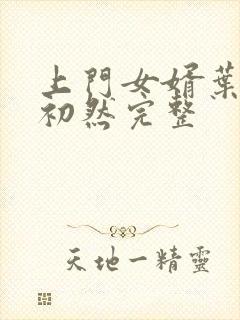 上門女婿葉
初然完整
天地一精靈